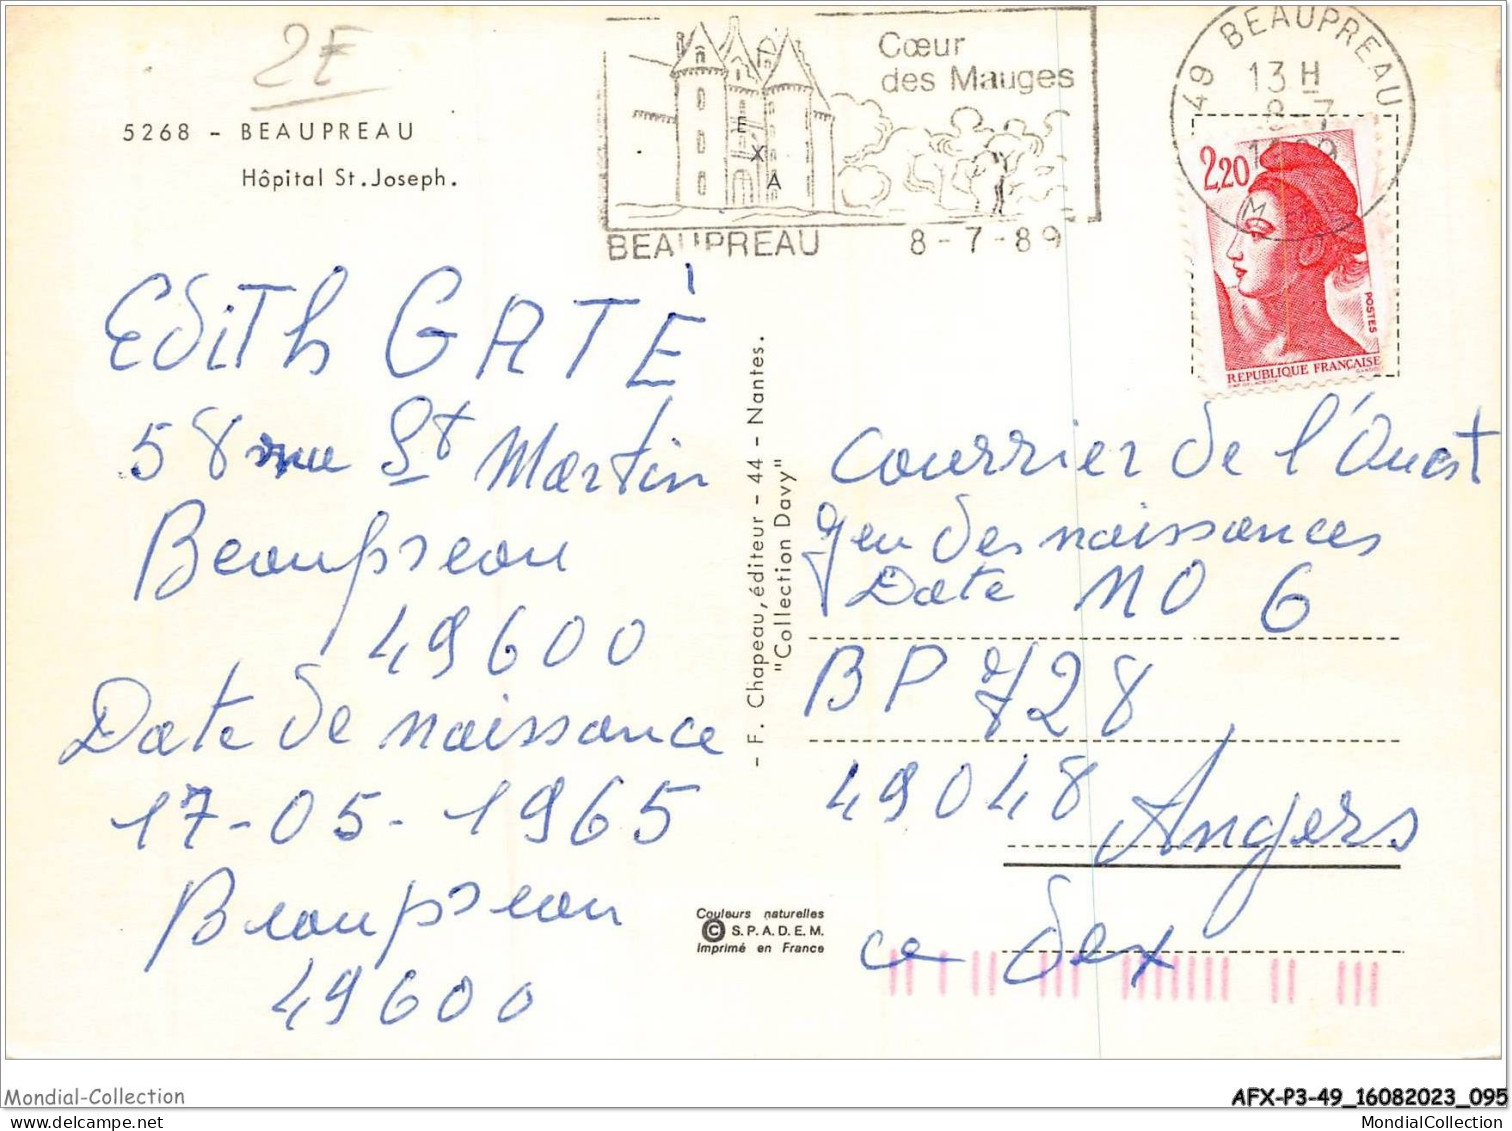 2F
5268 - BEAUPREAU
Hôpital St. Joseph.
Cœur
des Mauges
E
X
A
BEAUPREAU 8-7-89
49 BEAUPREAU
13 H
8-7
1989
2,20
POSTES
REPUBLIQUE FRANÇAISE
Edith GATÉ
58 rue St Martin
Beaupreau
49600
Date de naissance
17-05-1965
Beaupreau
49600
- F. Chapeau, éditeur - 44 - Nantes.
"Collection Davy"
Couleurs naturelles
© S.P.A.D.E.M.
Imprimé en France
Courrier de l'Ouest
Jeu des naissances
Date NO 6
BP 728
49048 Angers
ce dex
Mondial-Collection
AFX-P3-49_16082023_095
MondialCollection